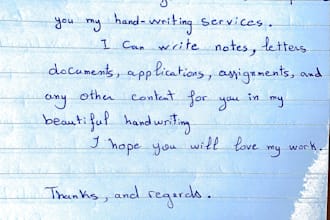 you my hand-writing services.
I Can write notes, letters
documents, applications, assignments, and
any other content for you in my
beautiful handwriting
I hope you will love my work.
Thanks, and regards.